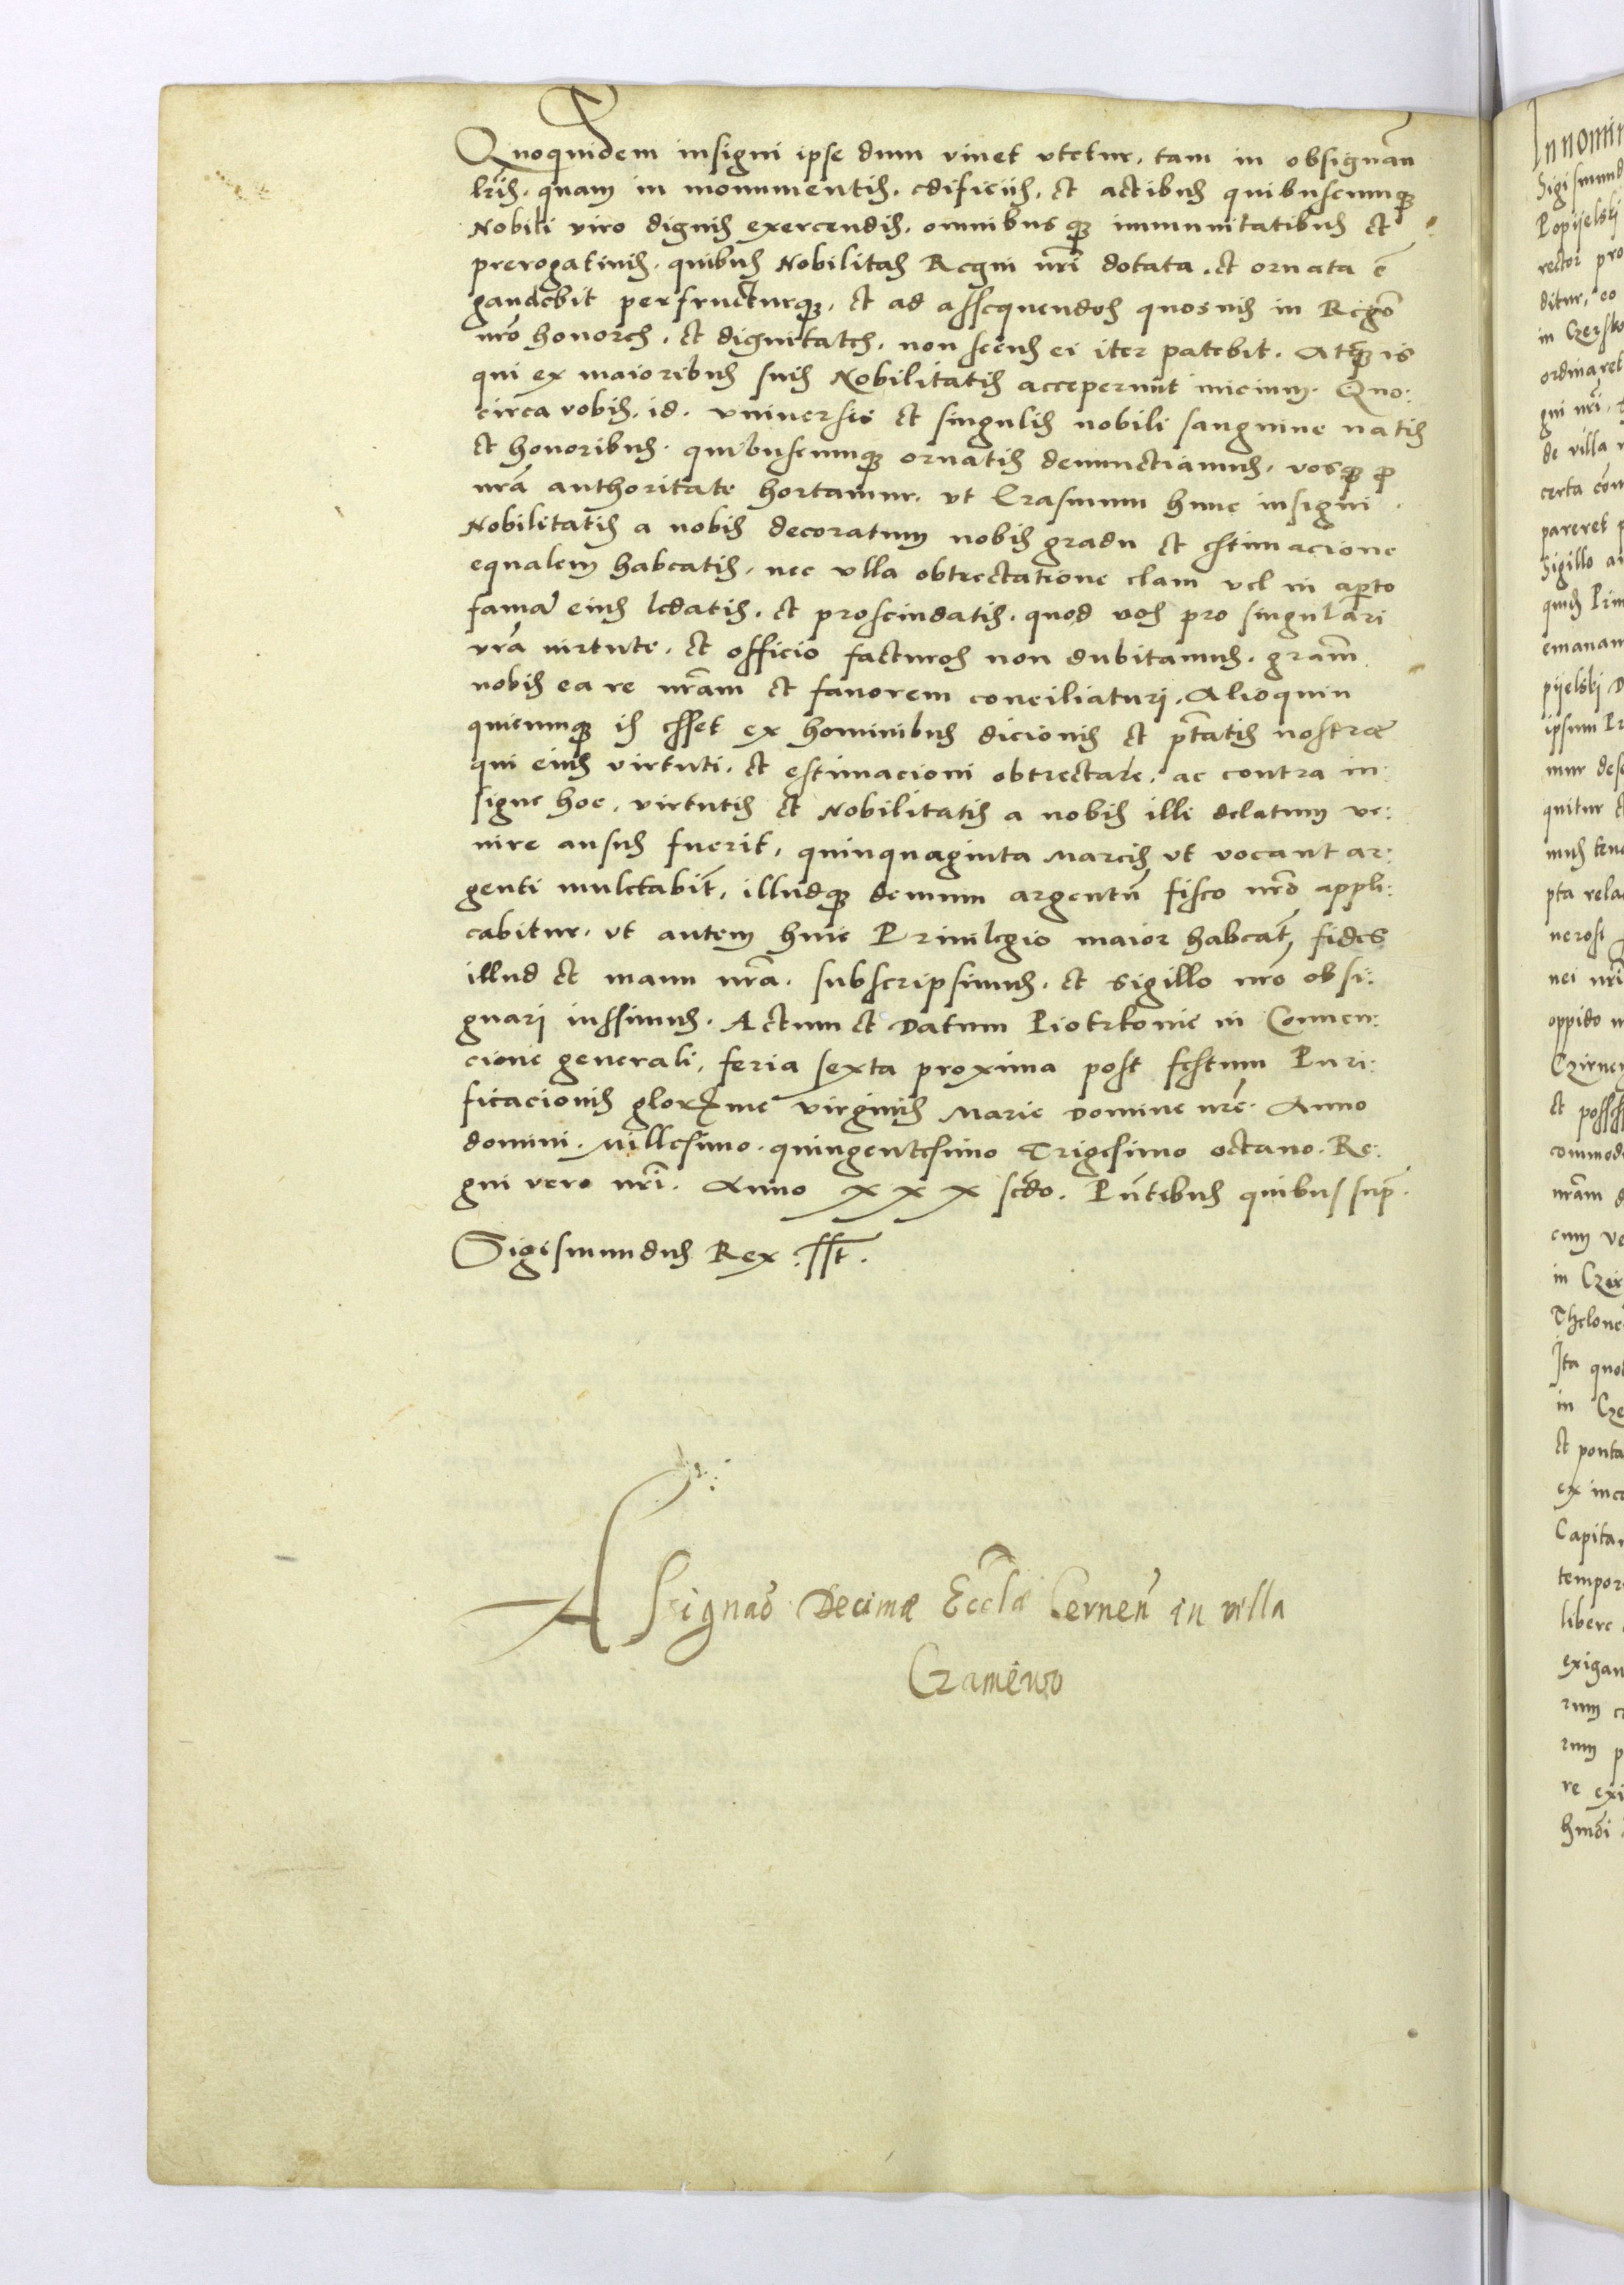 Quoquidem insigni ipse dum vivet vtetur, tam in obsignan̄
lr̄is. quam in monumentis. edificiis. et actibus quibuscumq;
Nobili viro dignis exercendis. omnibusq; immunitatibus et
prerogativis. quibus Nobilitas Regni nr̄i dotata. et ornata ē
gaudebit perfrueturq;, et ad assequendos quosvis in Regno
nr̄o honores. et dignitates. non secus ei iter patebit. Atq; is
qui ex maioribus suis Nobilitatis acceperunt inicium. Quo:
circa vobis. id. vniversis et singulis nobili sanguine natis
et honoribus. quibuscumq; ornatis denunctiamus. vosq; p
nr̄a authoritate hortamur. vt Erasmum hunc insigni
Nobilitatis a nobis decoratum nobis gradu et estimacione
equalem habeatis. nec vlla obtrectatione clam vel in apto
famam eius ledatis. et proscindatis. quod vos pro singulari
vr̄a virtute. et officio facturos non dubitamus. gram̄
nobis ea re nr̄am et favorem conciliaturi. Alioquin
quicumq; is esset ex hominibus dicionis et ptatis nostræ
qui eius virtuti. et estimacioni obtrectare. ac contra in:
signe hoc, virtutis et Nobilitatis a nobis illi delatum ve:
nire ausus fuerit, quinquaginta Marcis vt vocant ar:
genti mulctabit̄, illudq; demum argentū fisco nr̄o appli:
cabitur. vt autem huic Privilegio maior habeat̄ fides
illud et manu nr̄a. subscripsimus. et sigillo nr̄o obsi:
gnari iussimus. Actum et Datum Piotrkovie in Conven:
cione generali, feria sexta proxima post festum Puri:
ficacionis glorx̄me virginis Marie Domine nr̄e. Anno
domini. Millesimo. quingentesimo Trigesimo octavo. Re:
gni vero nr̄i. Anno XXX scdo. Pn̄tibus quibus sup̄.
Sigismundus Rex. sst.
Assignaō Decimæ Eccl̄æ Cernen̄ in villa
Czamēwo
In nomin
Sigismund
Popijelski
rector pro
ditur, eo
in Czersko
ordinaret
gni nr̄i.
de villa
certa com
pareret p
Sigillo
quis Prin
emanan
pijelski D
ipsum Pr
mur
quitur
mus tene
pta rela
nerosi
nei nr̄i
oppido
Czirnen
et possess
commod
nr̄am
cum
in Czir
Thelone
Ita quod
in Cze
et ponta
ex
Capitan
tempor
libere
exigan
rum
rum p
re exi
hmōi